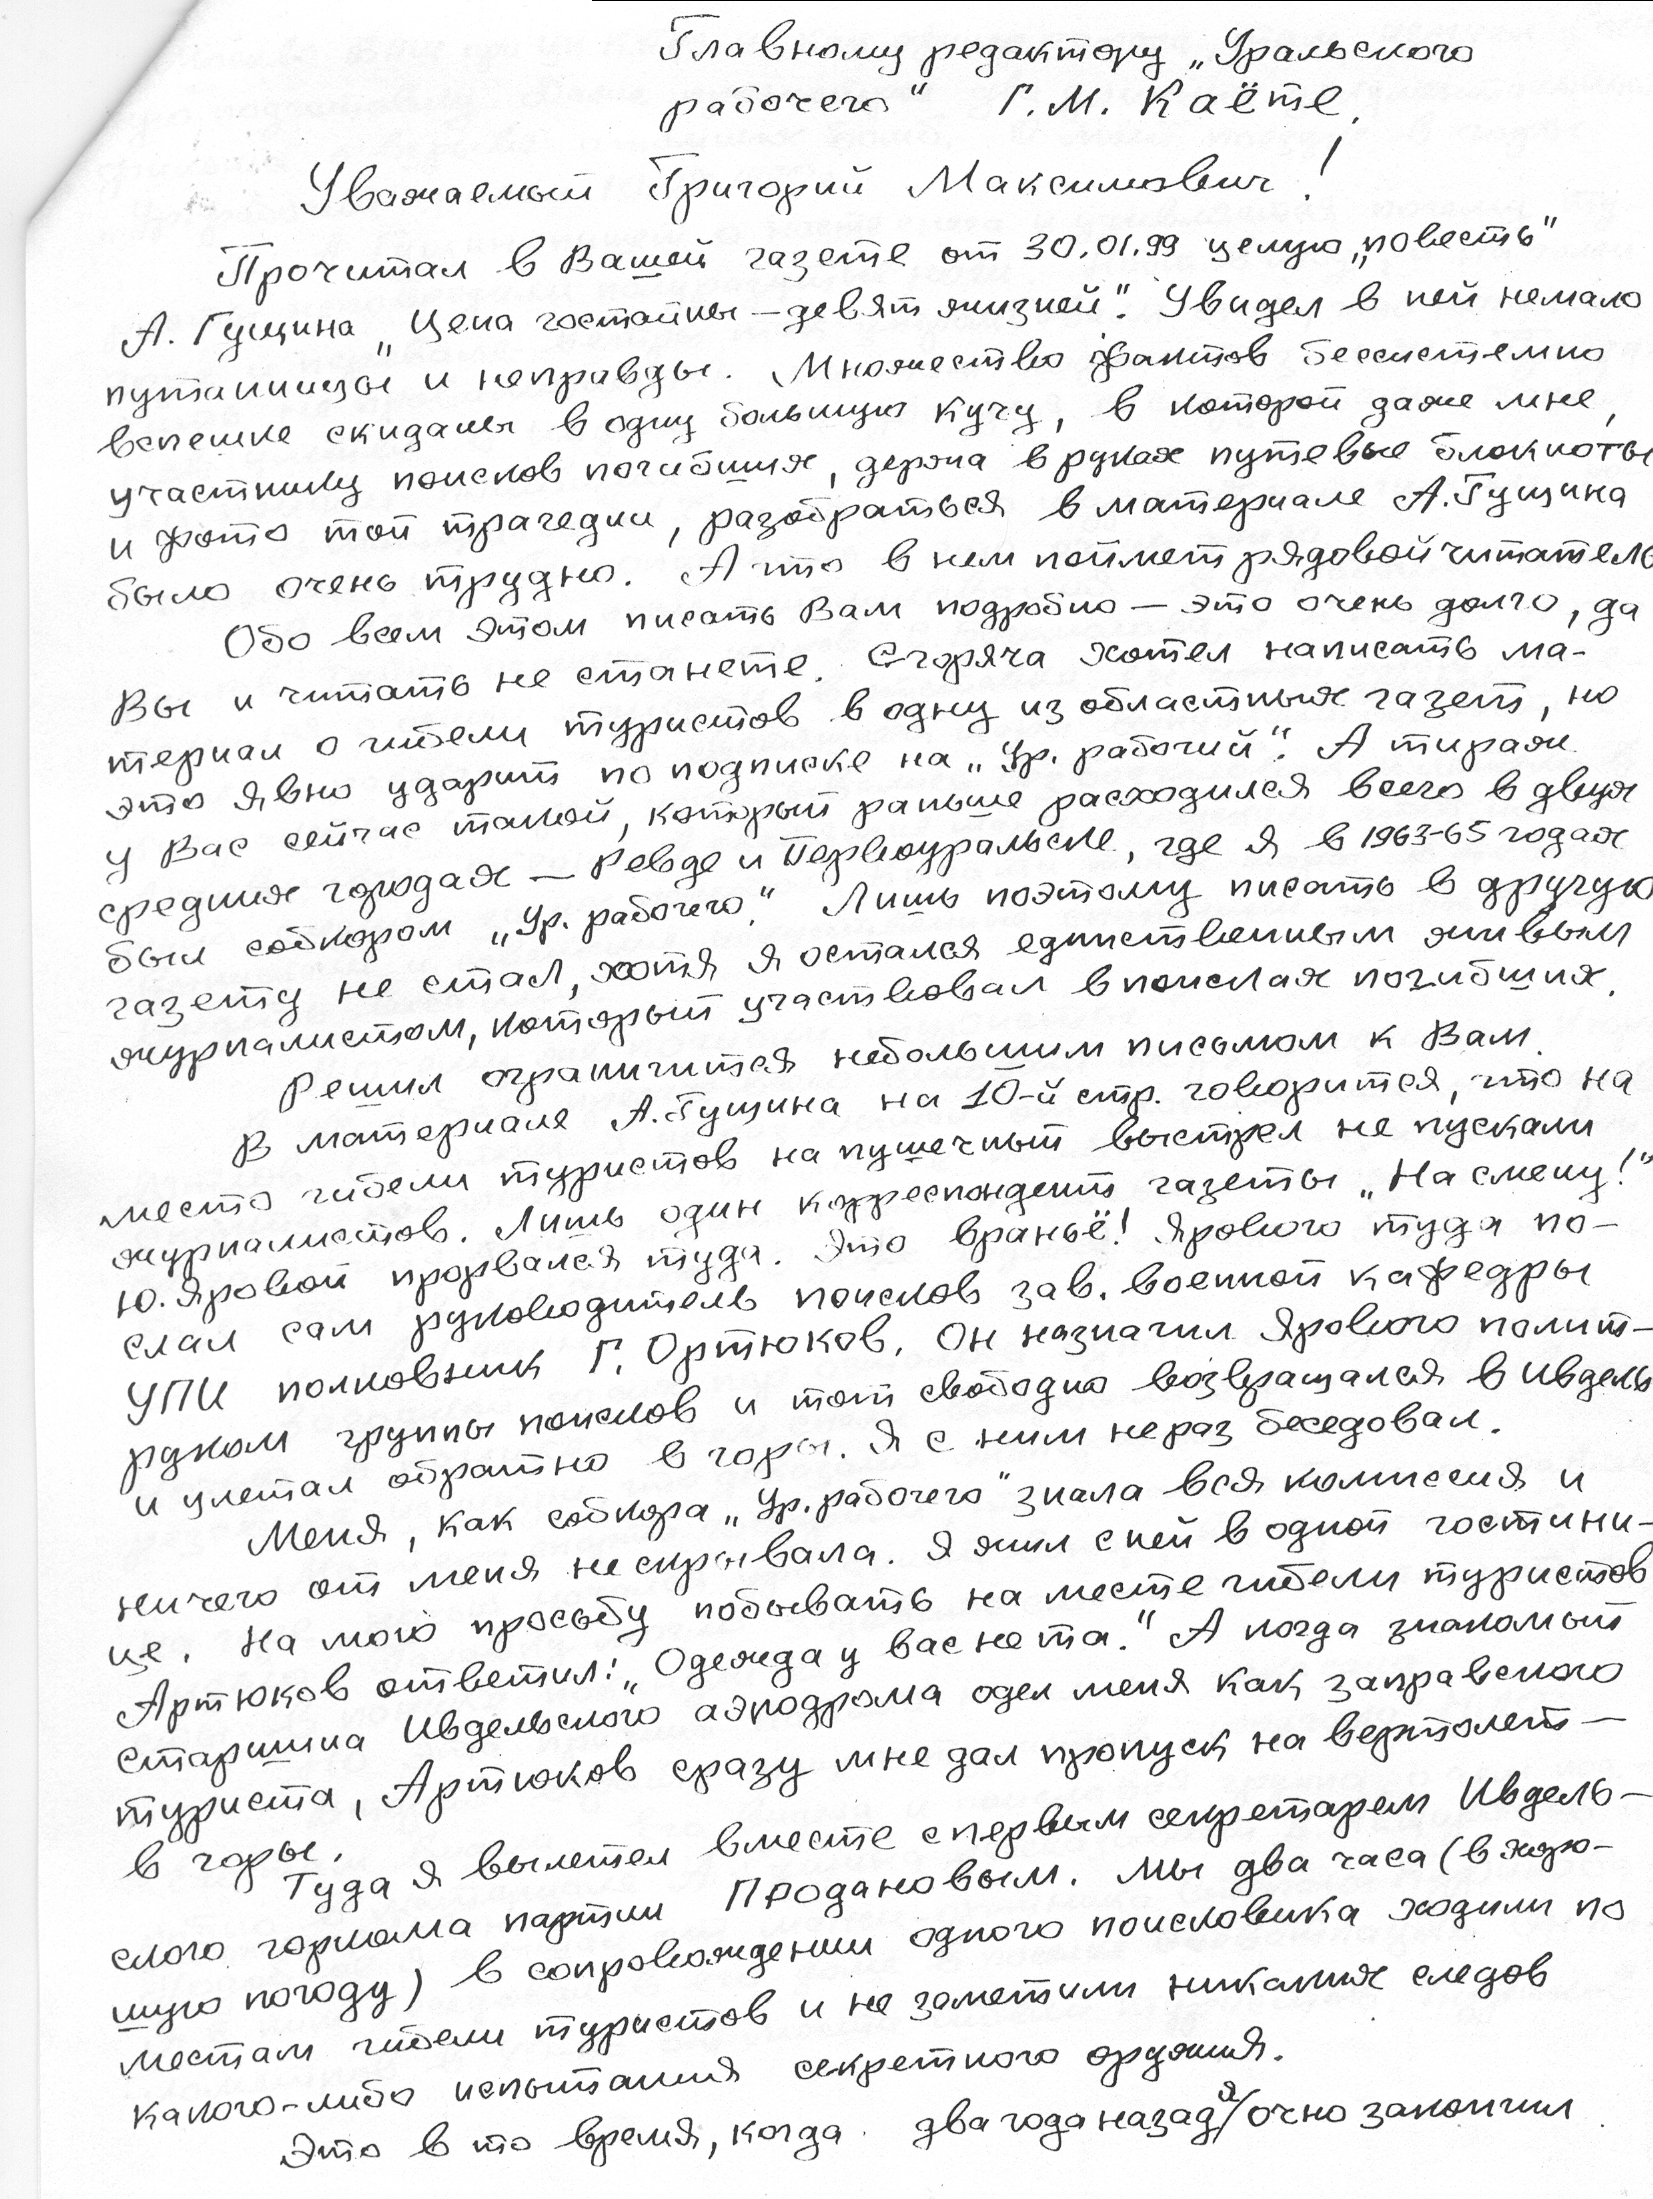 Главному редактору „Уральского
рабочего“ Г. М. Каёте.
Уважаемый Григорий Максимович!
Прочитал в Вашей газете от 30.01.99 целую „повесть“
А. Гущина „Цена гостайны – девят жизней“. Увидел в ней немало
путанницы и неправды. Множество фактов бессистемно
вспешке скиданы в одну большую кучу, в которой даже мне,
участнику поисков погибших, держа в руках путевые блокноты
и фото той трагедии, разобраться в материале А. Гущина
было очень трудно. А что в нем поймет рядовой читатель
Обо всем этом писать Вам подробно – это очень долго, да
Вы и читать не станете. Сгоряча хотел написать ма-
териал о гибели туристов в одну из областных газет, но
это явно ударит по подписке на „Ур. рабочий“. А тираж
у Вас сейчас такой, который раньше расходился всего в двух
средних городах – Ревде и Первоуральске, где я в 1963-65 годах
был собкором „Ур. рабочего“. Лишь поэтому писать в другую
газету не стал, хотя я остался единственным живым
журналистом, который участвовал в поисках погибших.
Решил ограничится небольшим письмом к Вам.
В материале А. Гущина на 10-й стр. говорится, что на
место гибели туристов на пушечный выстрел не пускали
журналистов. Лишь один корреспондент газеты „На смену!“
Ю. Яровой прорвался туда. Это враньё! Ярового туда по-
слал сам руководитель поисков зав. военной кафедры
УПИ полковник Г. Ортюков. Он назначил Ярового полит-
руком группы поисков и тот свободно возвращался в Ивдель
и улетал обратно в горы. Я с ним не раз беседовал.
Меня, как собкора „Ур. рабочего“ знала вся комиссия и
ничего от меня не скрывала. Я жил с ней в одной гостини-
це. На мою просьбу побывать на месте гибели туристов
Артюков ответил: „Одежда у вас не та.“ А когда знакомый
старшина Ивдельского аэродрома одел меня как заправского
туриста, Артюков сразу мне дал пропуск на вертолет –
в горы.
Туда я вылетел вместе с первым секретарем Ивдель-
ского горкома партии Продановым. Мы два часа (в хоро-
шую погоду) в сопровождении одного поисковика ходили по
местам гибели туристов и не заметили никаких следов
какого-либо испытания секретного оружия.
Это в то время, когда два года назад я очно закончил